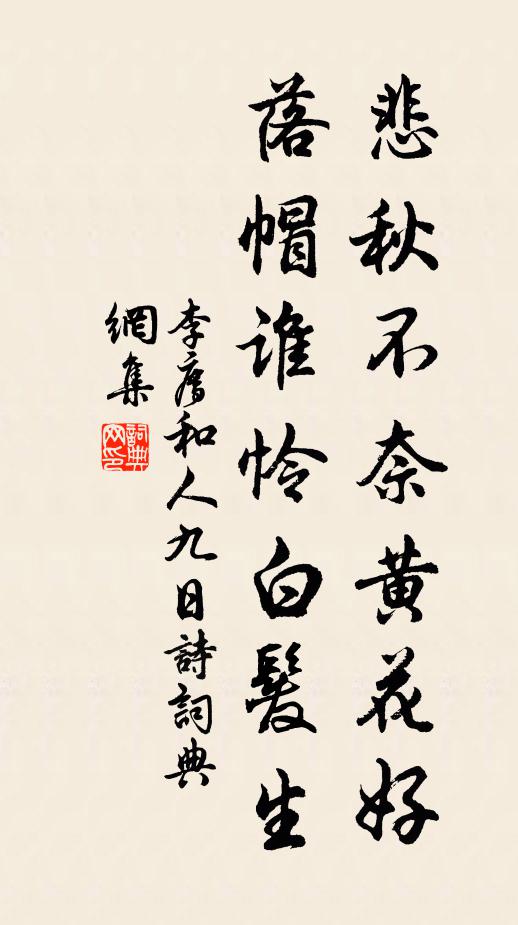 悲秋不奈黄花好
落帽谁怜白髮生
李廌和人九日詩詞典
網集
詞典
网印